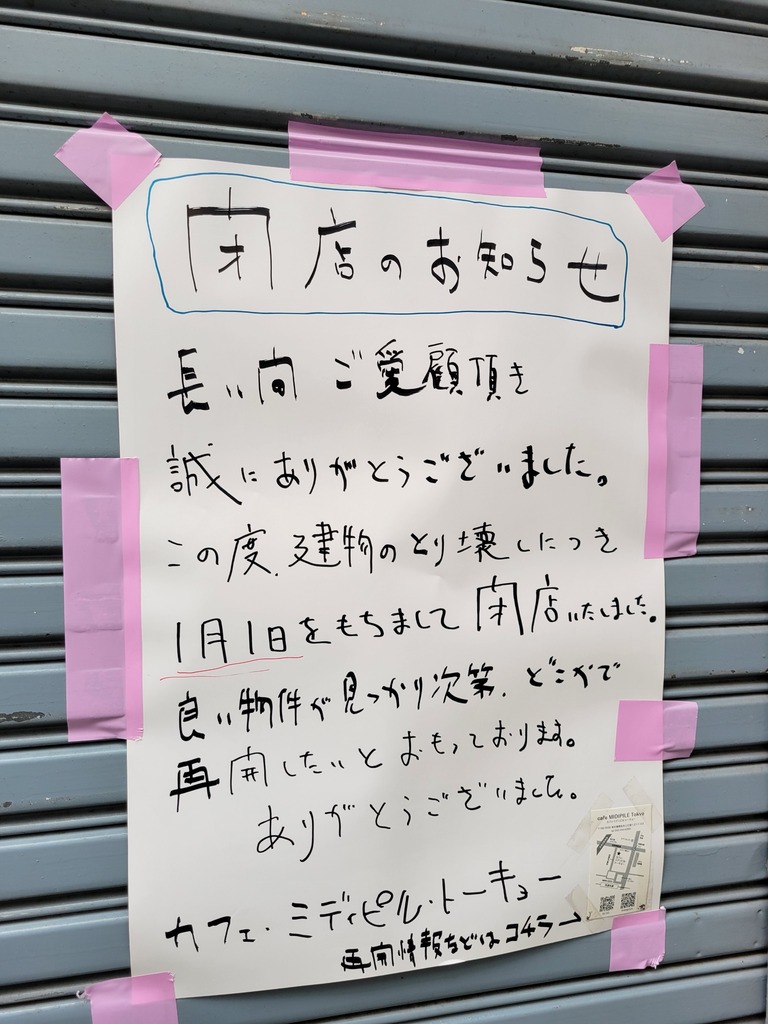 閉店のお知らせ
長い間 ご愛顧頂き
誠にありがとうございました。
この度、建物のとり壊しにつき
1月1日をもちまして閉店いたしました。
良い物件が見つかり次第、どこかで
再開したいとおもっております。
ありがとうございました。
カフェ・ミディピル・トーキョー
再開情報などはコチラ→
cafe MIDIPILE Tokyo